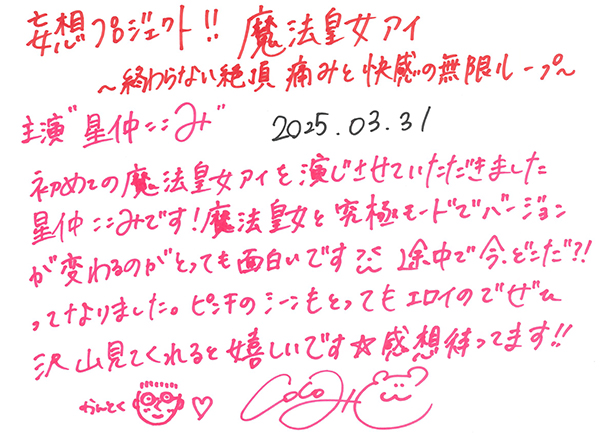 妄想プロジェクト!! 魔法皇女アイ
～終わらない絶頂 痛みと快感の無限ループ～
主演"星仲ここみ" 2025.03.31
初めての魔法皇女アイを演じさせていただきました
星仲ここみです！魔法皇女と究極モードでバージョン
が変わるのがとっても面白いです 途中で今、どこだ?!
ってなりました。ピンチのシーンもとってもエロイのでぜひ
沢山見てくれると嬉しいです☆感想待ってます!!
かんとく♡ CoCoみ